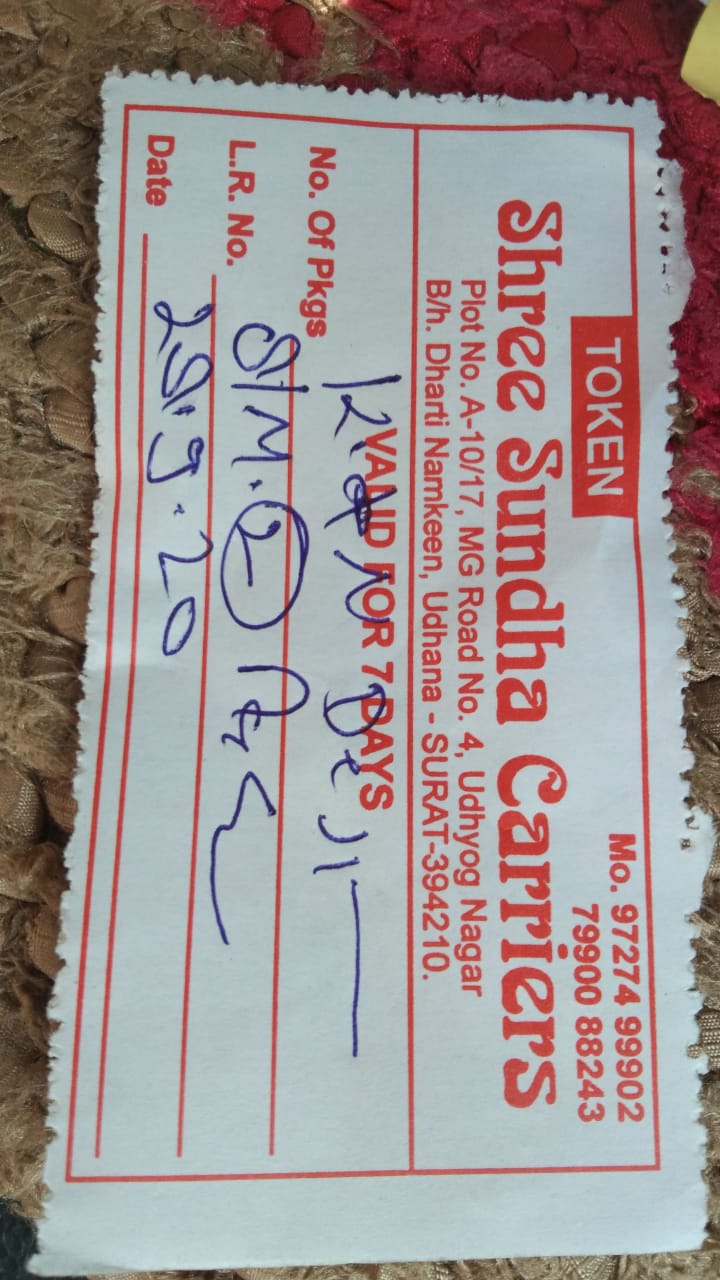 TOKEN
Mo. 97274 99902
79900 88243
Shree Sundha Carriers
Plot No. A-10/17, MG Road No. 4, Udhyog Nagar
B/h. Dharti Namkeen, Udhana - SURAT-394210.
VALID FOR 7 DAYS
No. Of Pkgs
L.R. No. S/M. 2
Date 29.9.20